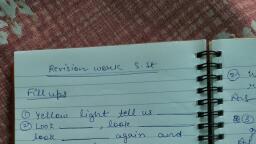 Revision work S.St
Fill ups
① Yellow light tell us
② Look ____, look
look ____ again and
②
Ans
③